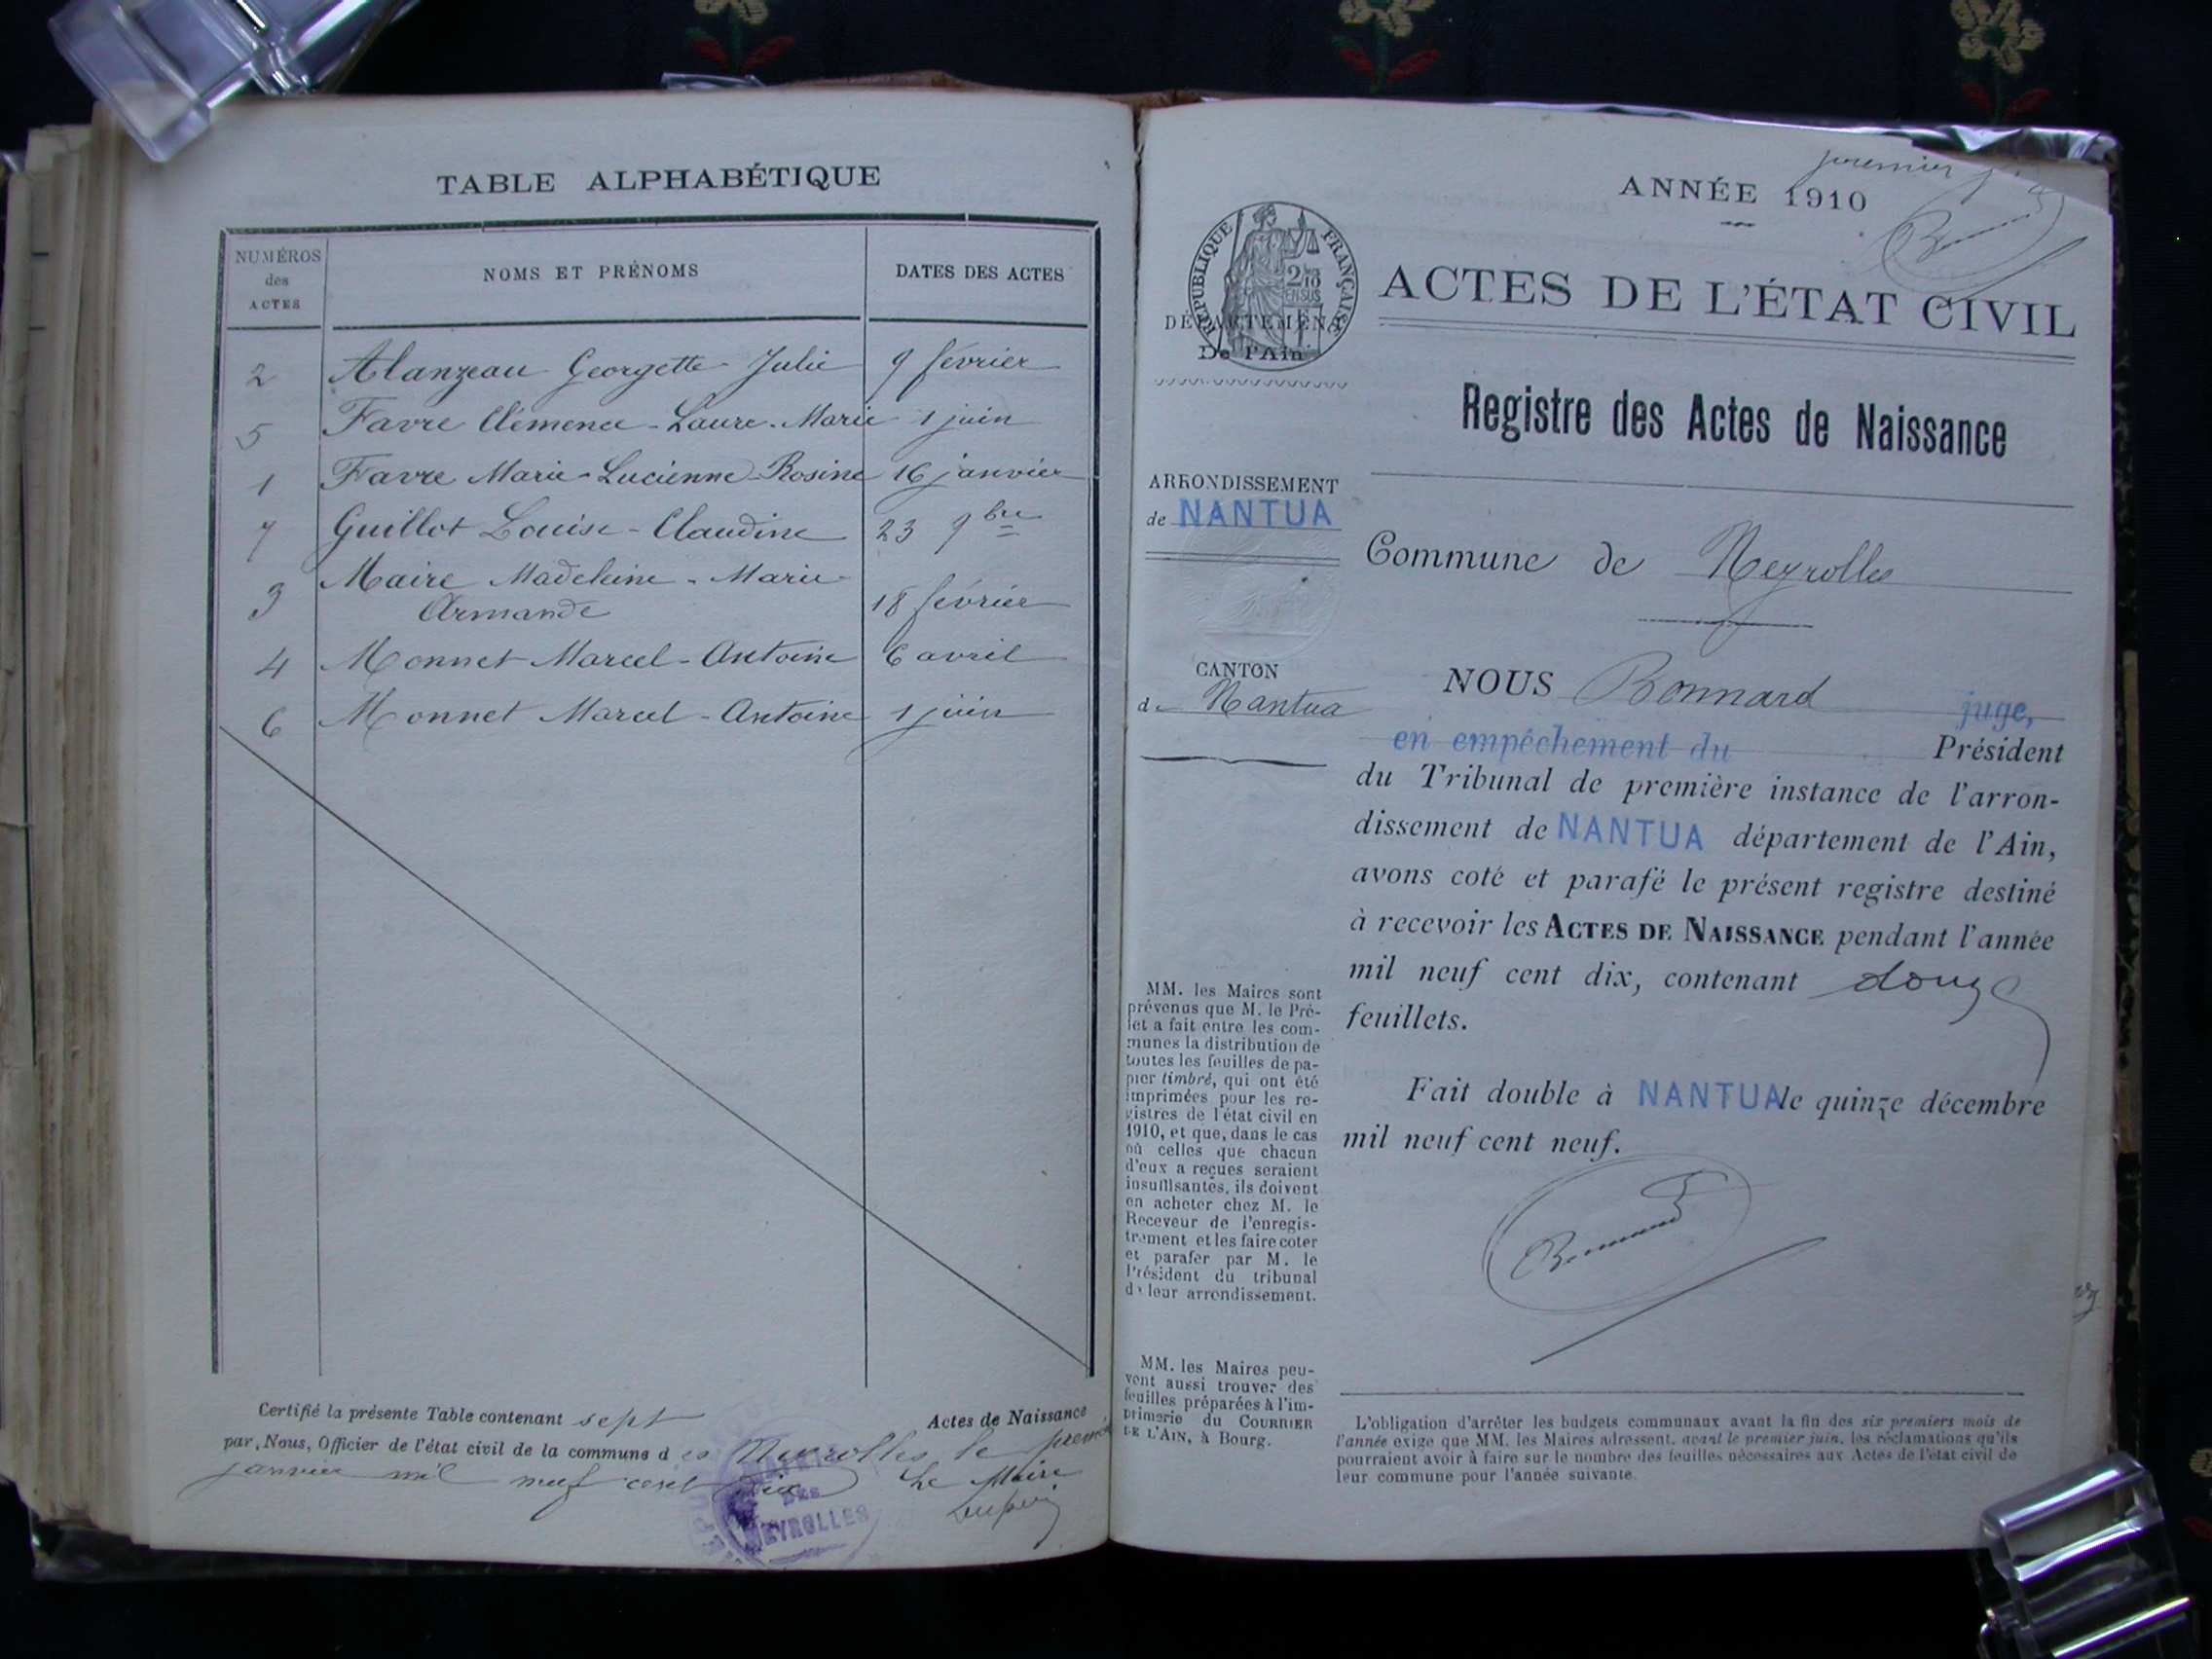 TABLE ALPHABÉTIQUE
NUMÉROS
des
ACTES
NOMS ET PRÉNOMS
DATES DES ACTES
2 Alanzeau Georgette Julie 9 février
5 Favre Clémence-Laure-Marie 1 juin
1 Favre Marie-Lucienne-Rosine 16 janvier
7 Guillot Louise-Claudine 23 9bre
3 Maire Madeleine-Marie
Armande 18 février
4 Monnet Marcel-Antoine 6 avril
6 Monnet Marcel-Antoine 1 juin
Certifié la présente Table contenant sept Actes de Naissance
par Nous, Officier de l'état civil de la commune des Neyrolles le premier
janvier mil neuf cent dix Le Maire
MAIRIE
DES
NEYROLLES
premier
ANNÉE 1910
RÉPUBLIQUE FRANÇAISE
DÉPARTEMENT
De l'Ain
ACTES DE L'ÉTAT CIVIL
Registre des Actes de Naissance
ARRONDISSEMENT
de NANTUA
Commune de Neyrolles
CANTON
de Nantua
NOUS Bonnard juge,
en empêchement du Président
du Tribunal de première instance de l'arron-
dissement de NANTUA département de l'Ain,
avons coté et parafé le présent registre destiné
à recevoir les ACTES DE NAISSANCE pendant l'année
mil neuf cent dix, contenant douze
feuillets.
Fait double à NANTUA le quinze décembre
mil neuf cent neuf.
Bonnard
MM. les Maires sont
prévenus que M. le Pré-
fet a fait entre les com-
munes la distribution de
toutes les feuilles de pa-
pier timbré, qui ont été
imprimées pour les re-
gistres de l'état civil en
1910, et que, dans le cas
où celles que chacun
d'eux a reçues seraient
insuffisantes, ils doivent
en acheter chez M. le
Receveur de l'enregis-
trement et les faire coter
et parafer par M. le
Président du tribunal
de leur arrondissement.
MM. les Maires peu-
vent aussi trouver des
feuilles préparées à l'im-
primerie du COURRIER
DE L'AIN, à Bourg.
L'obligation d'arrêter les budgets communaux avant la fin des six premiers mois de
l'année exige que MM. les Maires adressent, avant le premier juin, les réclamations qu'ils
pourraient avoir à faire sur le nombre des feuilles nécessaires aux Actes de l'état civil de
leur commune pour l'année suivante.